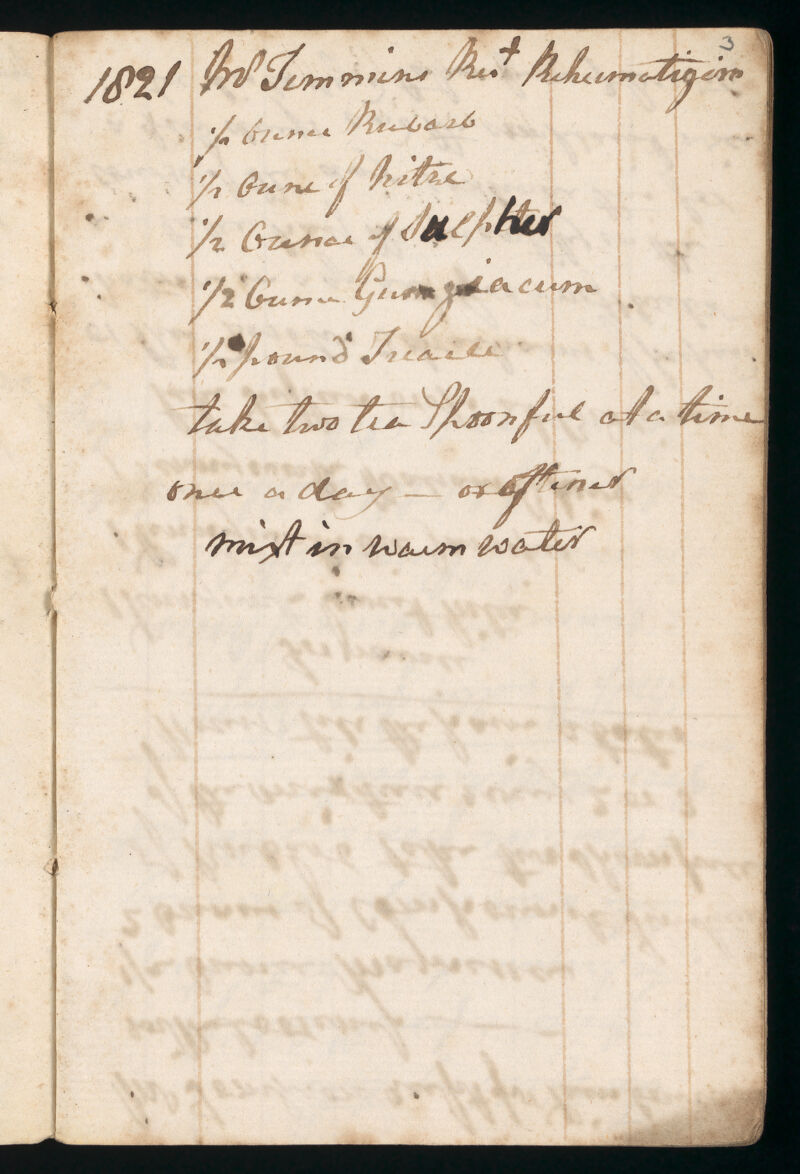 3
1821 Mr Temmins Res^t Reheumatigim
1/2 Ounce Rubarb
1/2 Oune of Nitre
1/2 Ounce of Sulphter
1/2 Ounce Gum giacum
1/2 pound Treacle
take two tea Spoonful at a time
once a day — or oftener
mixt in warm water